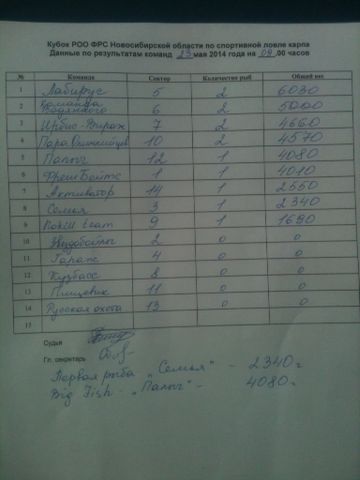 Кубок РОО ФРС Новосибирской области по спортивной ловле карпа
Данные по результатам команд 23 мая 2014 года на 09.00 часов
№ Команда Сектор Количество рыб Общий вес
1 Лабирус 5 2 6030
2 Команда Водяного 6 2 5000
3 Ирбис-Вираж 7 2 4660
4 Пара 10 2 4570
5 Палыч 12 1 4080
6 ФрешБейтс 1 1 4010
7 Активатор 14 1 2550
8 Семья 3 1 2340
9 team 9 1 1690
10 2 0 0
11 4 0 0
12 Кузбасс 8 0 0
13 Пищевик 11 0 0
14 Русская охота 13 0 0
15
Судья
Гл. секретарь
Первая рыба "Семья" - 2340 г
Big Fish - "Палыч" - 4080 г.